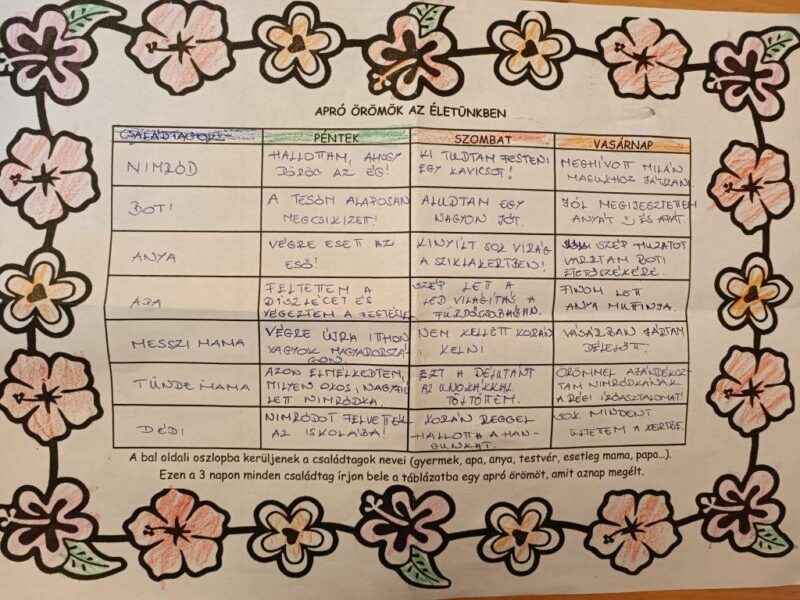 APRÓ ÖRÖMÖK AZ ÉLETÜNKBEN
CSALÁDTAGOK PÉNTEK SZOMBAT VASÁRNAP
NIMRÓD
HALLOTTAM, AHOGY
DÖRÖG AZ ÉG!
KI TUDTAM FESTENI
EGY KAVICSOT!
MEGHÍVOTT MILÁN
MAGUKHOZ JÁTSZANI.
BOTI
A TESÓM ALAPOSAN
MEGCSIKIZETT!
ALUDTAM EGY
NAGYON JÓT.
JÓL MEGIJESZTETTEM
ANYÁT ☺ ÉS APÁT.
ANYA
VÉGRE ESETT AZ
ESŐ!
KINYÍLT SOK VIRÁG
A SZIKLAKERTBEN!
SZÉP HUZATOT
VARRTAM BOTI
ETETŐSZÉKÉRE.
APA
FELTETTEM A
DÍSZLÉCET ÉS
VÉGEZTEM A FESTÉSSEL
SZÉP LETT A
LED VILÁGÍTÁS A
FÜRDŐSZOBÁBAN.
FINOM LETT
ANYA MUFFINJA.
MESSZI MAMA
VÉGRE ÚJRA ITTHON
VAGYOK MAGYARORSZÁ-
GON.
NEM KELLETT KORÁN
KELNI
VÁSÁRBAN JÁRTAM
DÉLELŐTT.
TÜNDE MAMA
AZON ELMÉLKEDTEM,
MILYEN OKOS, NAGYFIÚ
LETT NIMRÓDKA.
EZT A DÉLUTÁNT
AZ UNOKÁKKAL
TÖLTÖTTEM.
ÖRÖMMEL AJÁNDÉKOZ-
TAM NIMRÓDKÁNAK
A RÉGI ÍRÓASZTALOMAT!
DÉDI
NIMRÓDOT FELVETTÉK
AZ ISKOLÁBA!
KORÁN REGGEL
HALLOTTA A HAN-
GUNKAT.
SOK MINDENT
ÜLTETEM A KERTBE.
A bal oldali oszlopba kerüljenek a családtagok nevei (gyermek, apa, anya, testvér, esetleg mama, papa...).
Ezen a 3 napon minden családtag írjon bele a táblázatba egy apró örömöt, amit aznap megélt.